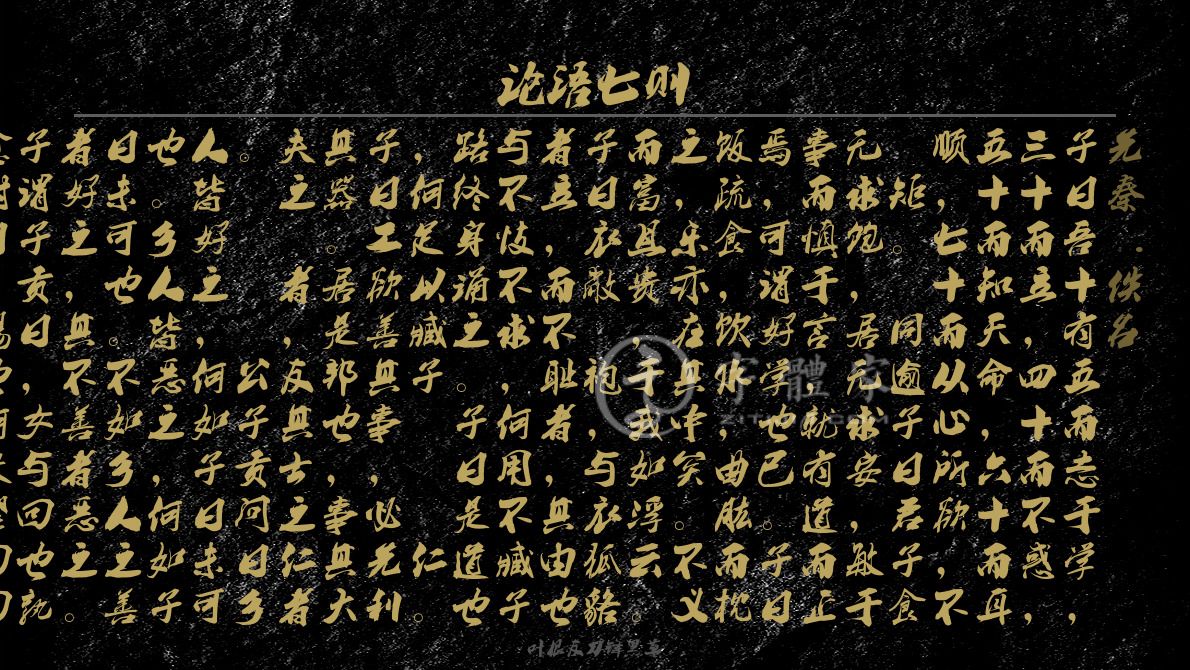 论语七则
先秦·佚名
子曰吾十有五而志于学，
三十而立，四十而不惑，
五十而知天命，六十而耳
顺，七十而从心所欲，不
逾矩。 子曰君子食
无求饱，居无求安，敏于
事而慎于言，就有道而正
焉，可谓好学也已。 子曰
饭疏食，饮水，曲肱而枕
之，乐亦在其中矣。不义
而富且贵，于我如浮云。
子曰衣敝 袍，与衣狐貉
者立，而不耻者，其由也
与不忮不求，何用不臧子
路终身诵之。子曰是道也
，何足以臧 子 仁。
子曰工欲善其事，必先利
其器。居是邦也，事其大
夫之 者，友其士之仁者
。 子贡问曰乡
人皆好之，何如子曰未可
也。乡人皆恶之，何如子
曰未可也。不如乡人之善
者好之，其不善者恶之。
子谓子贡曰，女与回也孰